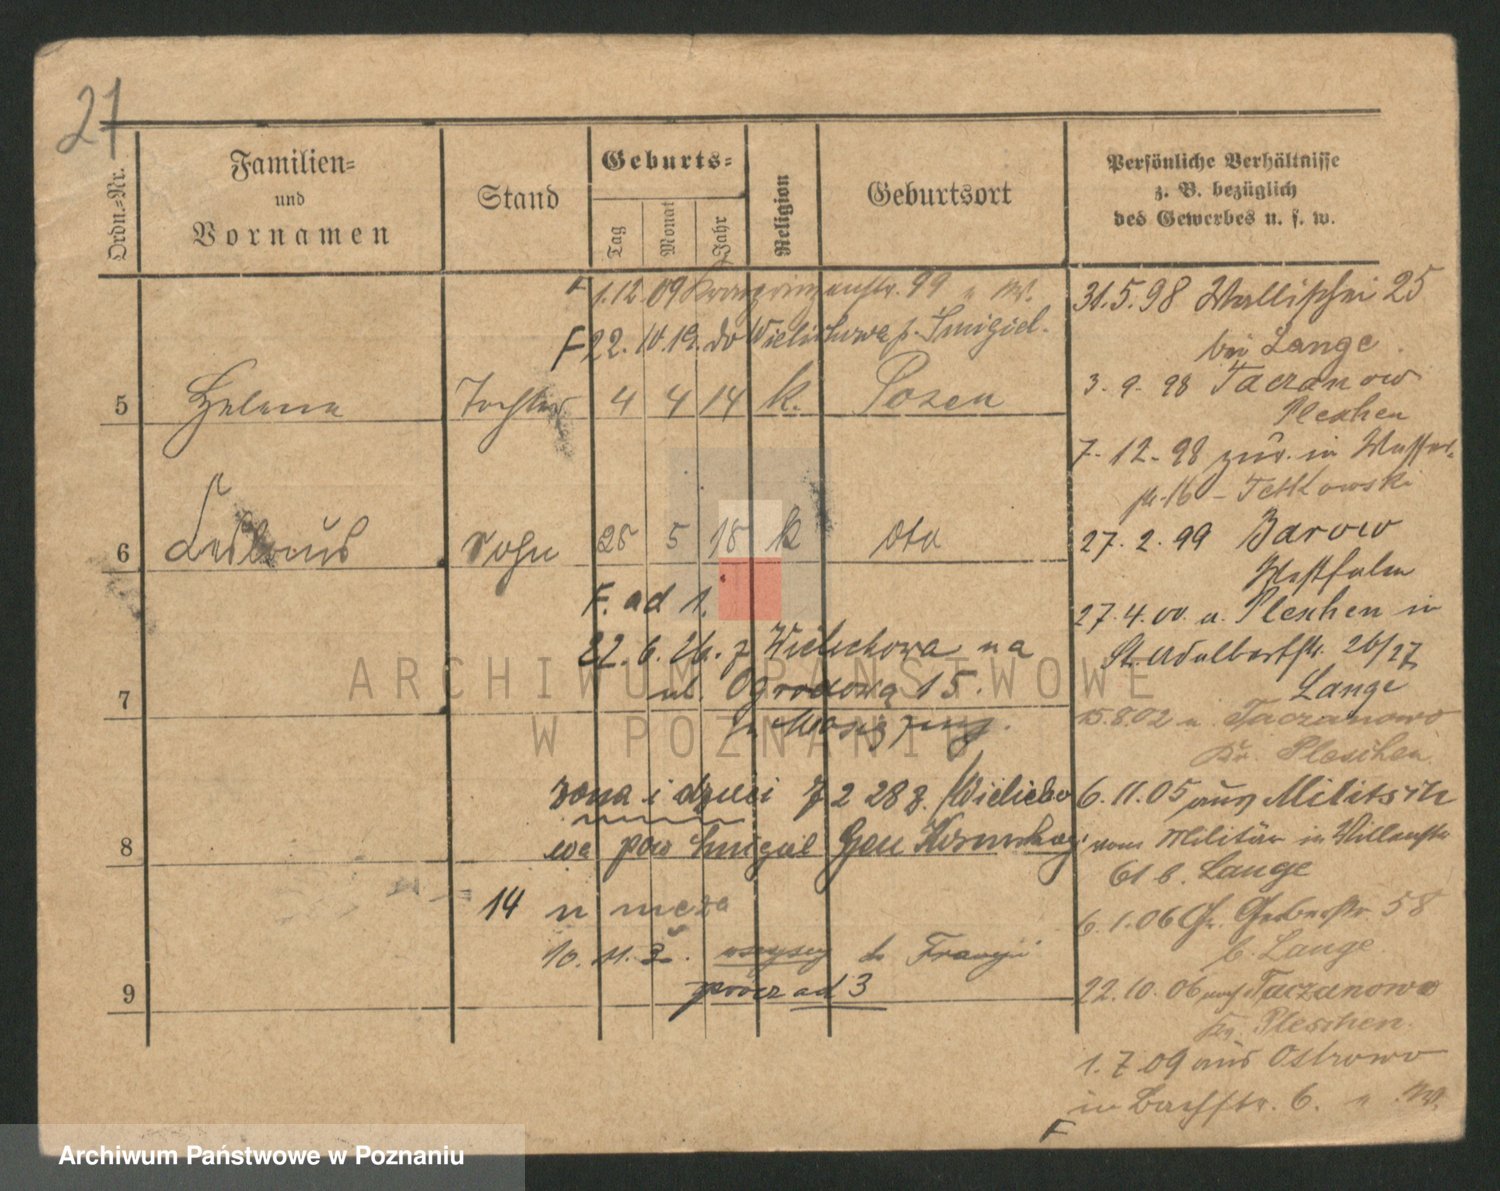 21
Ordn.-Nr.
Familien-
und
Vornamen
Stand
Geburts-
Tag
Monat
Jahr
Religion
Geburtsort
Persönliche Verhältnisse
z. B. bezüglich
des Gewerbes u. s. w.
F 1.12.09 99
F 22. 10.19. do Wielichowa p. Smigiel.
5 Helena Tochter 4 4 14 k. Posen
6 Sohn 25 5 18 k dto
F. ad 1.
22.6.26. z Wielichowa na
ul. Ogrodową 15.
7
żona i dzieci 7 2 28 z Wielicho
wa pow Smigiel
8
14 u męża
10. 11. wszyscy do Francji
prócz ad 3
9
31.5.98 Wallischei 25
bei Lange.
3.9.98 Taczanow
Pleschen
7.12.98 zur. in
16 - Tetkowski
27.2.99 Barow
Westfalen
27.4.00 a. Pleschen in
St. Adalbertstr. 26/27
Lange
15.8.02 n. Taczanowo
Kr. Pleschen
6.11.05 aus Militsch
vom Militär in
61 b. Lange
6.1.06 Gr. Gerberstr. 58
b. Lange.
22.10.06 auf Taczanowo
Kr. Pleschen.
1.7.09 aus Ostrowo
in Bachstr. 6.
F
ARCHIWUM PAŃSTWOWE
W POZNANIU
Archiwum Państwowe w Poznaniu